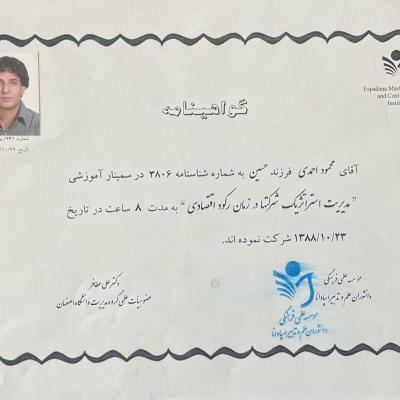 گواهینامه
Espadana
and
Insti
شماره: ۲۶۱
تاریخ: ۱۰/۲۹
آقای محمود احمدی فرزند حسین به شماره شناسنامه ۳۸۰۶ در سمینار آموزشی
"مدیریت استراتژیک شرکتها در زمان رکود اقتصادی" به مدت ۸ ساعت در تاریخ
۱۳۸۸/۱۰/۲۳ شرکت نموده اند.
دکتر علی عطافر
عضو هیات علمی گروه مدیریت دانشگاه اصفهان
موسسه علمی فرهنگی
دانشوران علم و تدبیر اسپادانا
موسسه علمی فرهنگی
دانشوران علم و تدبیر اسپادانا